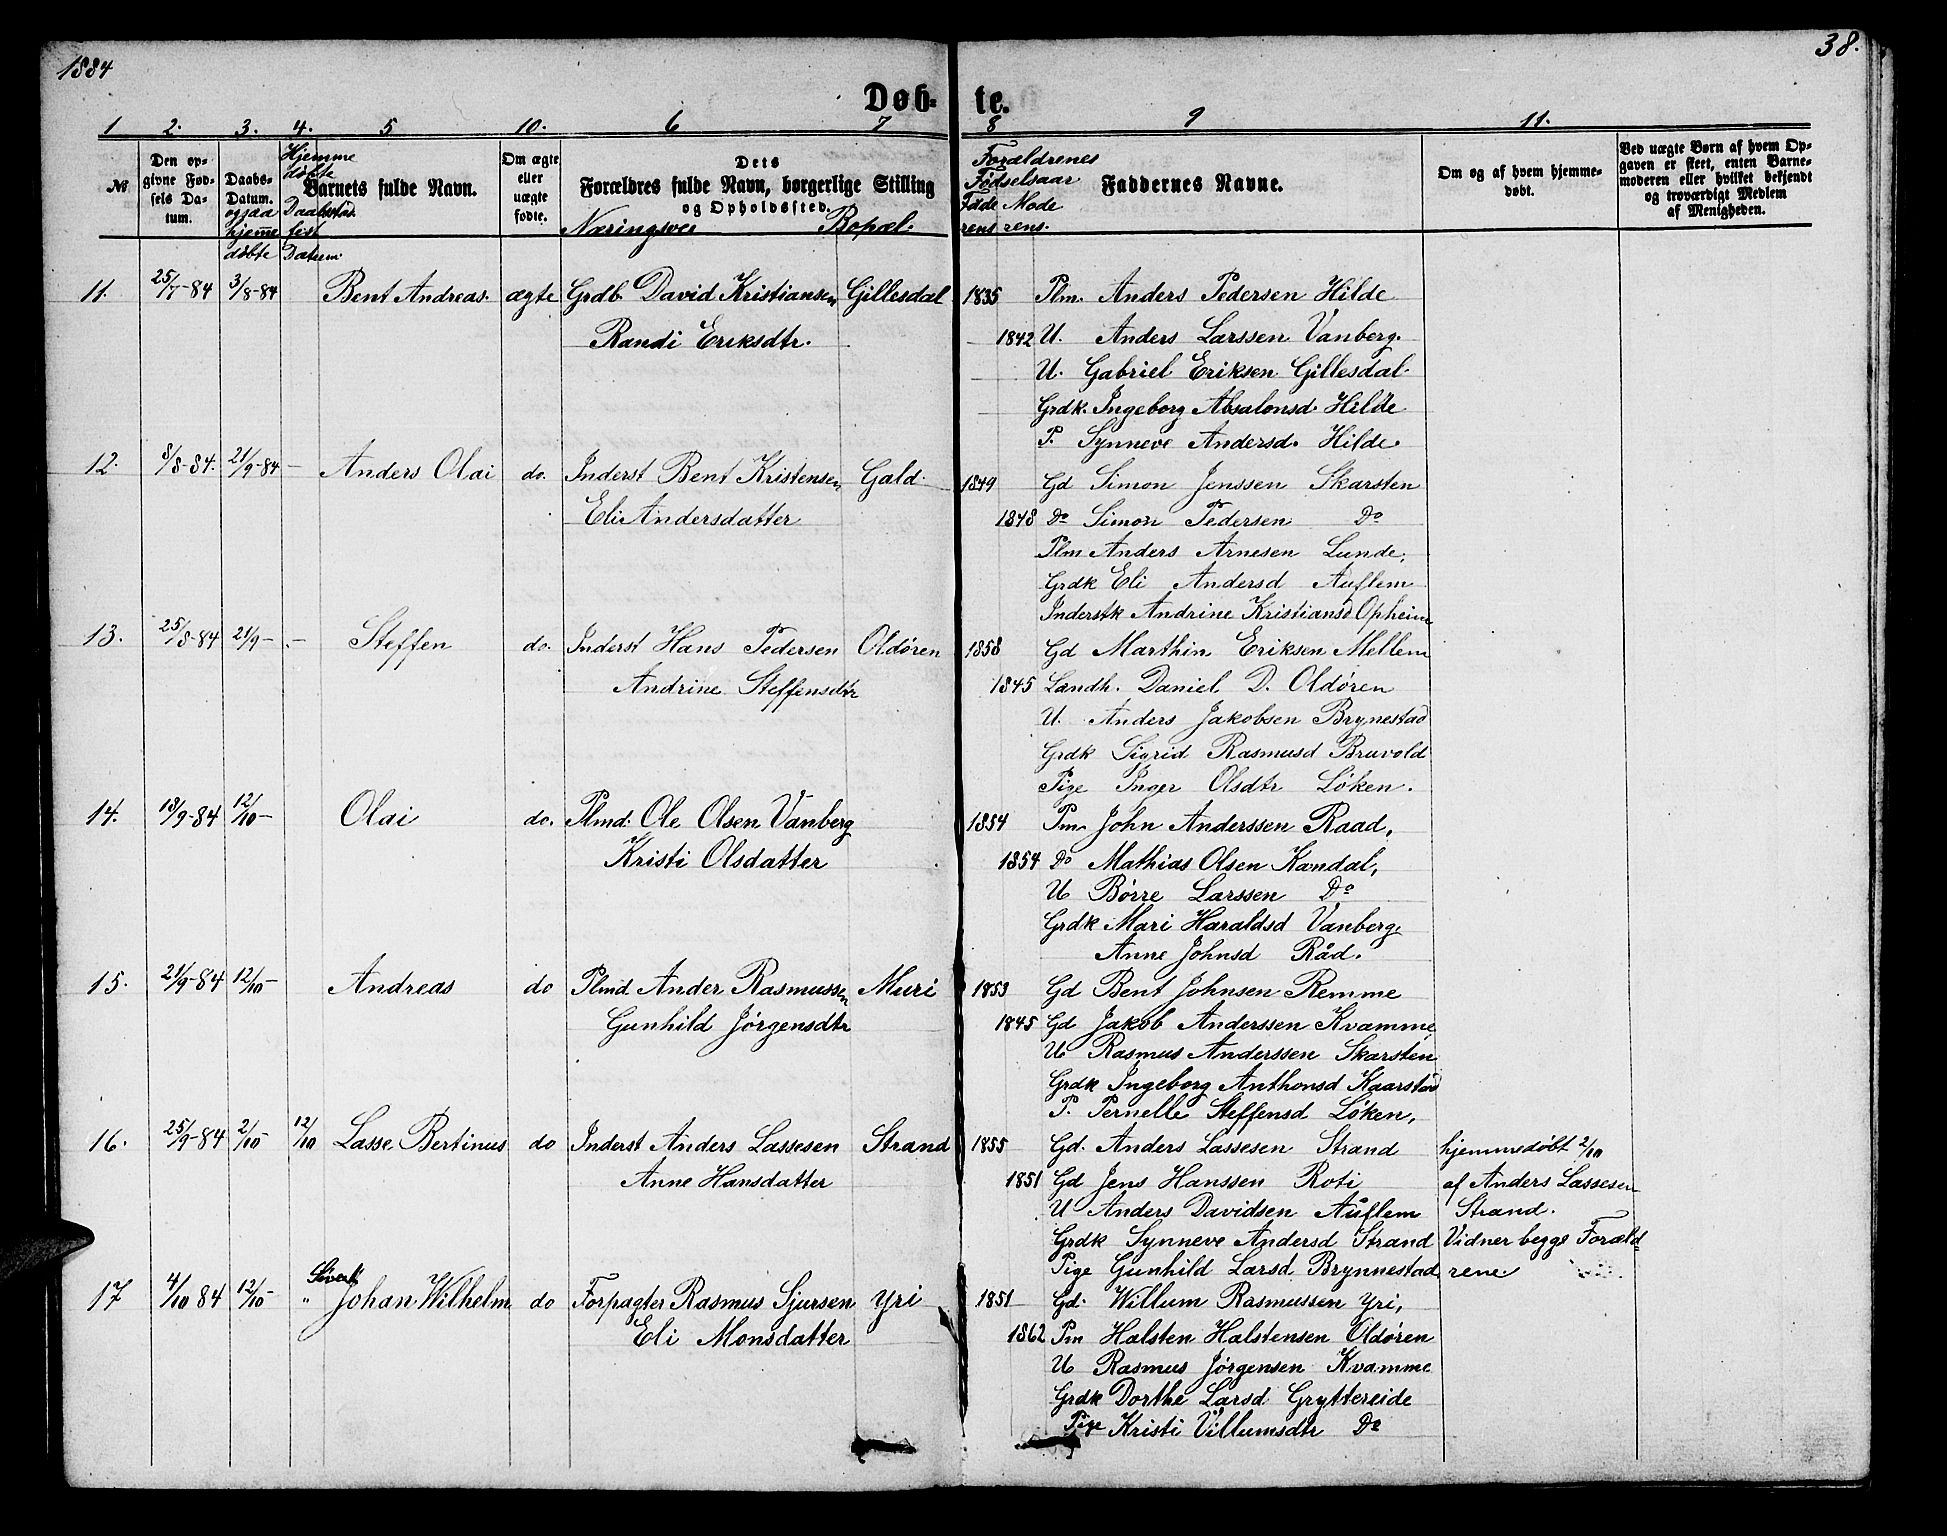 1884
38.
Døb-te.
1 2. 3. 4. 5 10. 6 7 8 9 11.
№
Den op-
givne Fød-
sels Da-
tum.
Daabs-
Datum.
ogsaa
hjemme
døbte
Hjemme
døbte
Datum
Barnets fulde Navn.
Om ægte
eller
uægte
fødte.
Dets
Forældres fulde Navn, borgerlige Stilling
og Opholdssted.
Næringsvei Bopæl.
Forældrenes
Fødselsaar
Fæde Mode
rens rens.
Faddernes Navne.
Om og af hvem hjemme-
døbt.
Ved uægte Børn af hvem Op-
gaven er skeet, enten Barne-
moderen eller hvilket bekjendt
og troværdigt Medlem
af Menigheden.
11. 25/7-84 3/8-84 Bent Andreas. ægte Grdb. David Kristiansen Gillesdal 1835 Plm. Anders Pedersen Hilde
Randi Eriksdtr. 1842 U. Anders Larssen Vanberg.
U. Gabriel Eriksen Gillesdal.
Grdk. Ingeborg Absalonsd. Hilde
P. Synneve Andersd. Hilde.
12. 8/8-84. 21/9-84 - Anders Olai do. Inderst Bent Kristensen Gald. 1849 Gd Simon Jenssen Skarsten
Eli Andersdatter 1848 Do Simon Pedersen Do
Plm Anders Arnesen Lunde.
Grdk Eli Andersd Auflem
Inderstk Andrine Kristiansd Opheim
13. 25/8-84 21/9- - Steffen do. Inderst Hans Pedersen Oldøren 1858 Gd Marthin Eriksen Mellem
Andrine Steffensdtr 1845 Landh. Daniel D. Oldøren
U. Anders Jakobsen Brynestad
Grdk Sigrid Rasmusd Bruvold
Pige Inger Olsdtr Løken.
14. 13/9-84 12/10- Olai do. Plmd. Ole Olsen Vanberg 1854 Pm. John Anderssen Raad,
Kristi Olsdatter 1854 Do Mathias Olsen Kandal,
U Børre Larssen Do
Grdk Mari Haraldsd Vanberg
Anne Johnsd Råd.
15. 21/9-84 12/10- Andreas do Plmd. Ander Rasmussen Muri 1853 Gd Bent Johnsen Remme
Gunhild Jørgensdtr 1845 Gd Jakob Anderssen Kvamme
U Rasmus Anderssen Skarsten
Grdk Ingeborg Anthonsd Kaarstad
P. Pernelle Steffensd Løken,
16. 25/9-84 2/10- 12/10 Lasse Bertinus do Inderst Anders Lassesen Strand 1855 Gd. Anders Lassesen Strand hjemmedøbt 2/10
Anne Hansdatter 1851 Gd Jens Hanssen Roti af Anders Lassesen
U Anders Davidsen Auflem Strand.
Grdk Synneve Andersd Strand Vidner begge Foræld-
Pige Gunhild Larsd. Brynnestad rene.
Sivert
17 4/10 84 12/10- " Johan Wilhelm do Forpagter Rasmus Sjursen Yri 1851 Gd. Willum Rasmussen Yri,
Eli Monsdatter 1862 Pm Halsten Halstensen Oldøren
U Rasmus Jørgensen Kvamme
Grdk Dorthe Larsd Gryttereide
Pige Kristi Villumsdtr Do